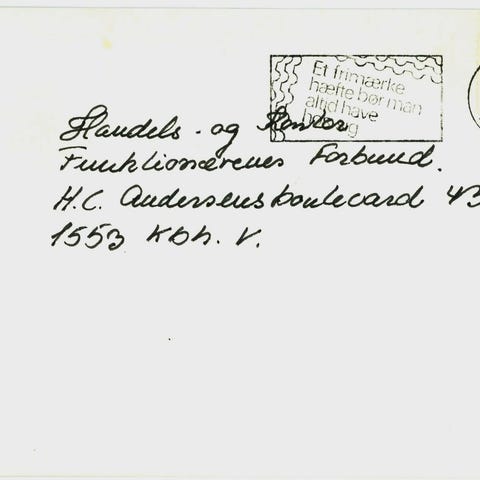 Et frimærke
hæfte bør man
altid have
Handels- og Kontor
Funktionærenes Forbund.
H.C. Andersens boulevard 43
1553 Kbh. V.